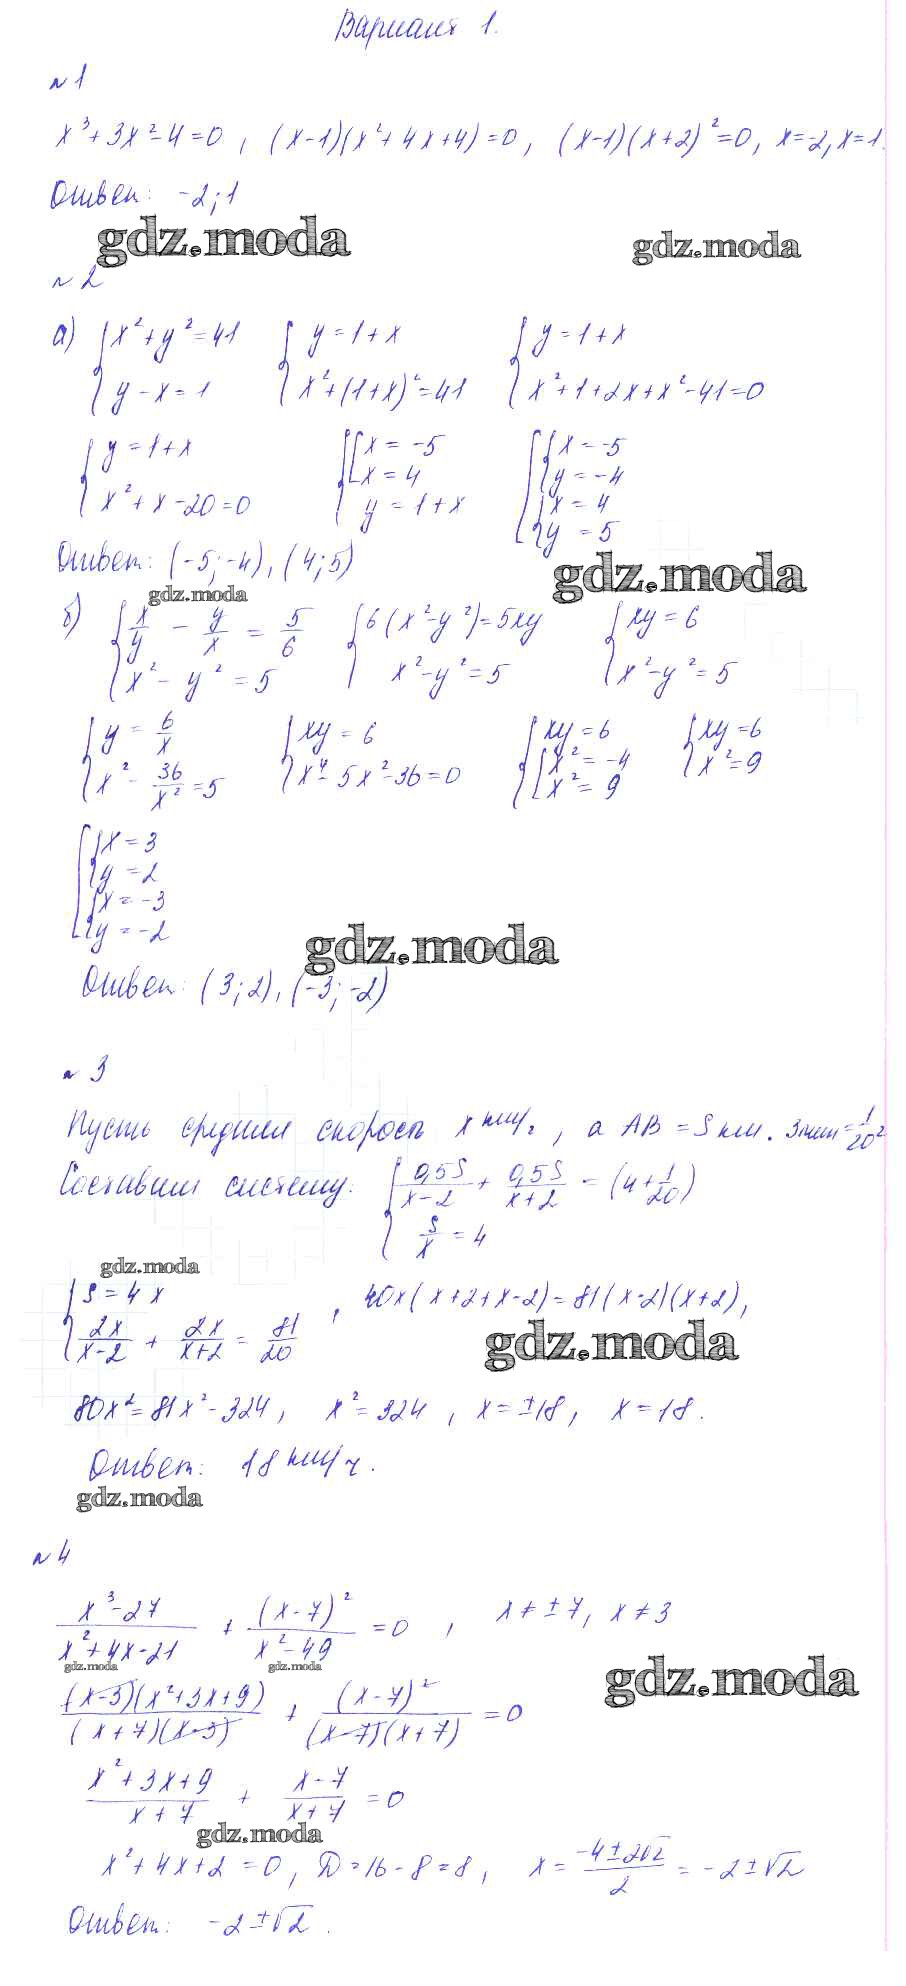 Вариант 1.
№1
x³+3x²-4=0, (x-1)(x²+4x+4)=0, (x-1)(x+2)²=0, x=-2, x=1.
Ответ: -2; 1
gdz.moda gdz.moda
№2
а) {x²+y²=41 {y=1+x {y=1+x
y-x=1 x²+(1+x)²=41 x²+1+2x+x²-41=0
{y=1+x {[x=-5 [{x=-5
x²+x-20=0 x=4 y=-4
y=1+x {x=4
y=5
Ответ: (-5;-4), (4;5)
gdz.moda gdz.moda
б) {x/y - y/x = 5/6 {6(x²-y²)=5xy {xy=6
x²-y²=5 x²-y²=5 x²-y²=5
{y=6/x {xy=6 {xy=6 {xy=6
x²-36/x²=5 x⁴-5x²-36=0 [x²=-4 x²=9
x²=9
[{x=3
y=2
{x=-3
y=-2
gdz.moda
Ответ: (3;2), (-3;-2)
№3
Пусть средняя скорость x км/ч, а AB=S км. 3мин=1/20 ч
Составим систему: {0,5S/(x-2) + 0,5S/(x+2) = (4+1/20)
S/x=4
gdz.moda
{S=4x , 40x(x+2+x-2)=81(x-2)(x+2),
2x/(x-2) + 2x/(x+2) = 81/20
gdz.moda
80x²=81x²-324, x²=324, x=±18, x=18.
Ответ: 18 км/ч.
gdz.moda
№4
(x³-27)/(x²+4x-21) + (x-7)²/(x²-49) = 0, x≠±7, x≠3
gdz.moda gdz.moda gdz.moda
(x-3)(x²+3x+9)/((x+7)(x-3)) + (x-7)²/((x-7)(x+7)) = 0
(x²+3x+9)/(x+7) + (x-7)/(x+7) = 0
gdz.moda
x²+4x+2=0, D=16-8=8, x=(-4±2√2)/2=-2±√2
Ответ: -2±√2.